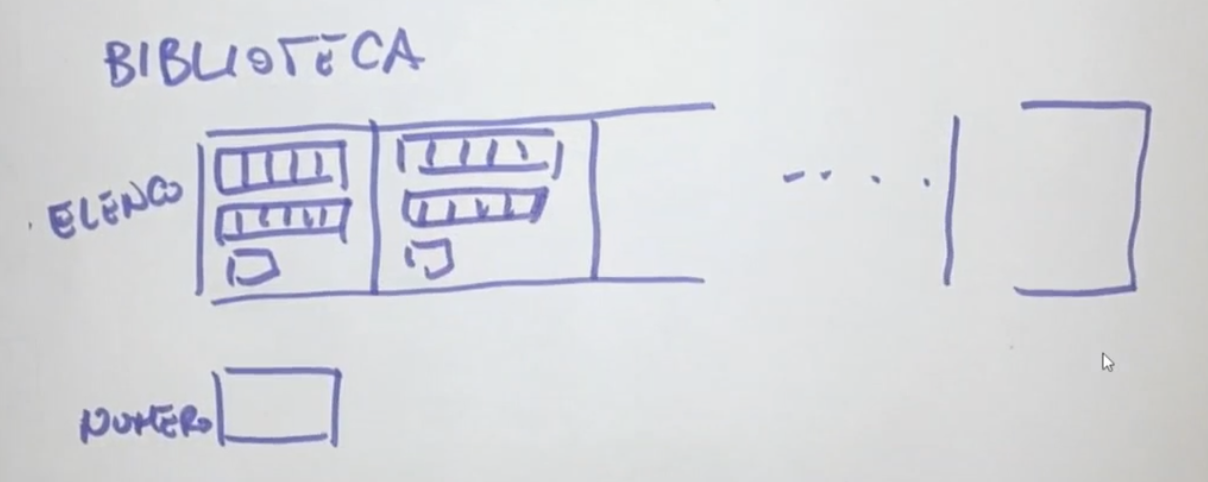 BIBLIOTECA
ELENCO
NUMERO